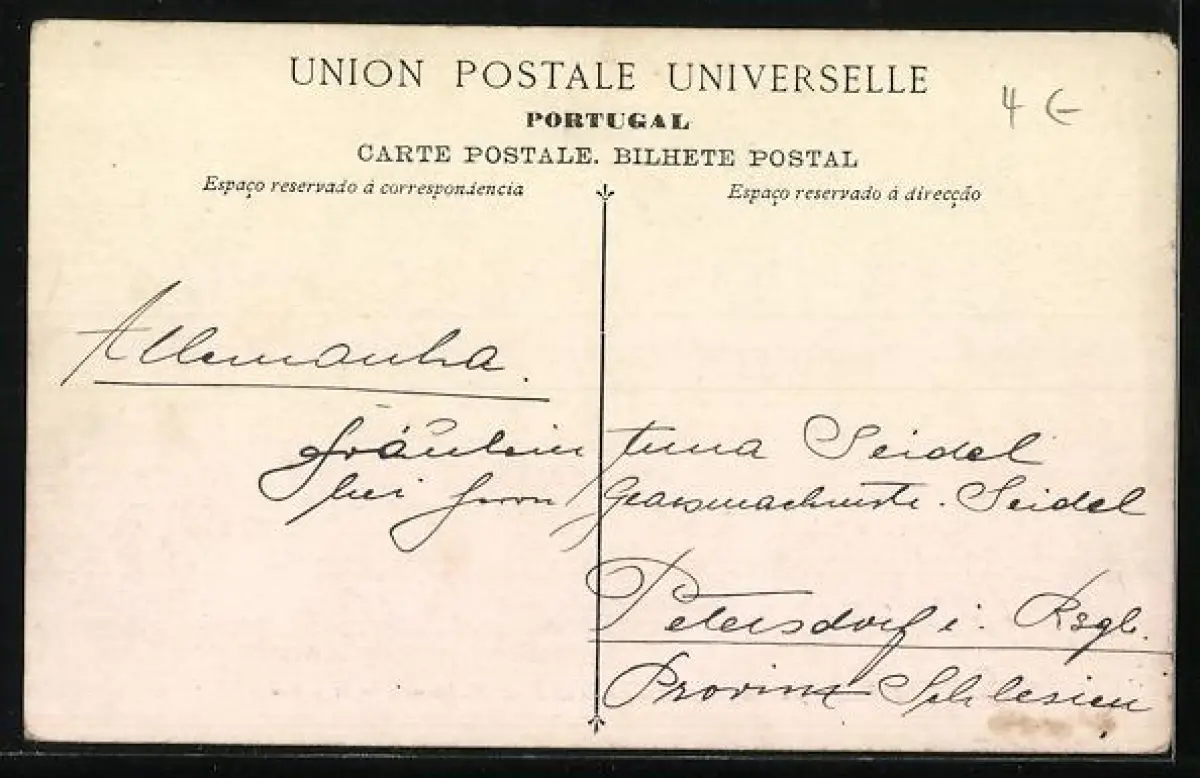 UNION POSTALE UNIVERSELLE
4 €
PORTUGAL
CARTE POSTALE. BILHETE POSTAL
Espaço reservado á correspondencia
Espaço reservado á direcção
Allemanha.
Fräulein Seidel
bei Herrn Seidel
Petersdorf i. Rsgb.
Provinz Schlesien